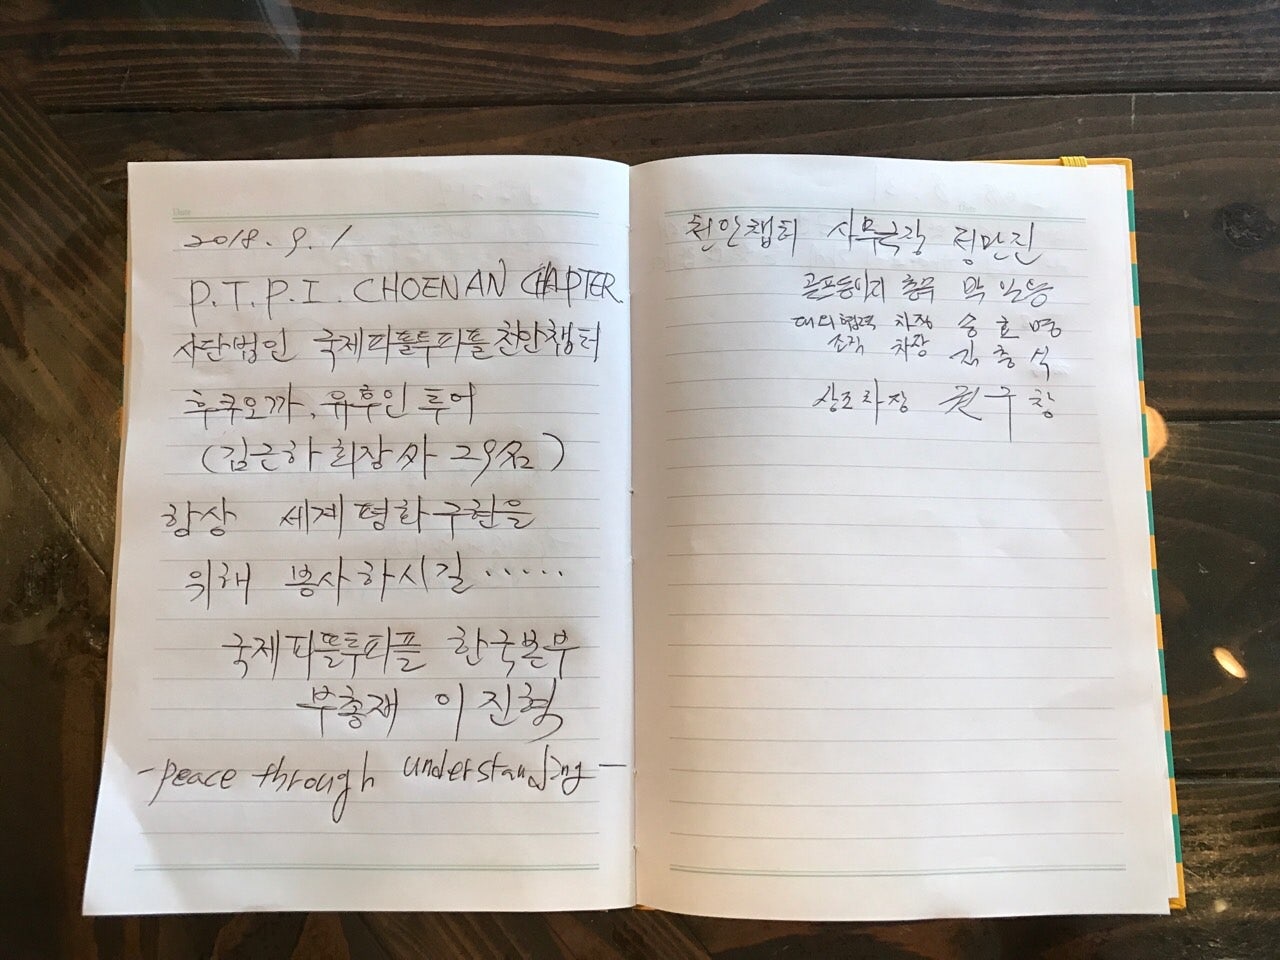 Date
2018. 9. 1
P.T.P.I. CHOENAN CHAPTER.
사단법인 국제피플투피플천안챕터
후쿠오까, 유후인 투어
(김근하 회장 外 29名)
항상 세계평화구현을
위해 봉사하시길.....
국제피플투피플 한국본부
부총재 이진혁
-peace through understanding-
Date
천안챕터 사무국장 정만진
총무
대외협력 차장 송호명
조직 차장 김충석
상조차장 권구창